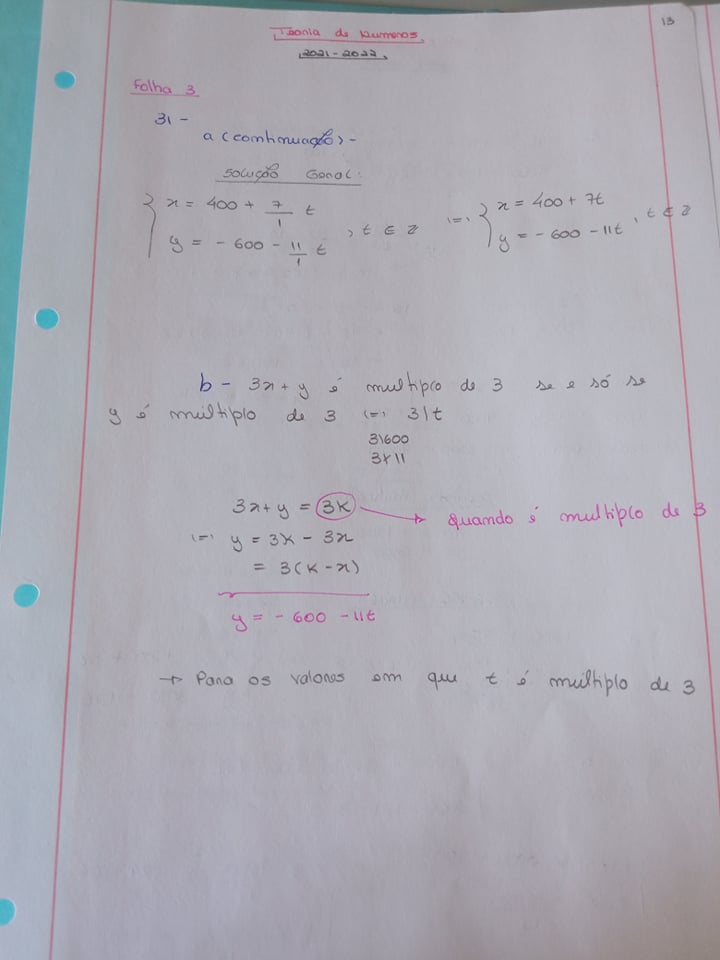 13
Teoria de Números
2021-2022
Folha 3
31 -
a (continuação) -
Solução Geral:
{ x = 400 + 7/1 t
y = - 600 - 11/1 t , t ∈ Z
(=) { x = 400 + 7t
y = - 600 - 11t , t ∈ Z
b - 3x + y é multiplo de 3 se e só se
y é múltiplo de 3 (=) 3|t
3|600
3∤11
3x + y = 3k → quando é multiplo de 3
(=) y = 3k - 3x
= 3(k - x)
y = - 600 - 11t
→ Para os valores em que t é múltiplo de 3